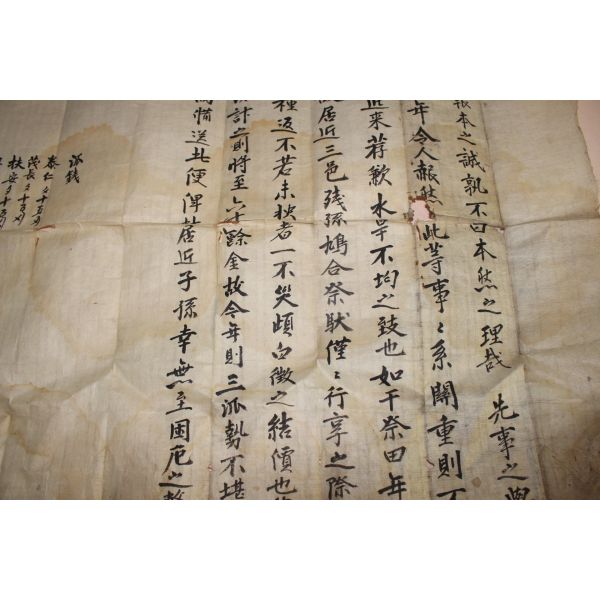 報本之誠孰不曰本然之理哉 先事之
年令人赧然此等事〻系關重則不
近來荐歉水旱不均之致也如干祭田年
居近三邑殘孫鳩合祭狀僅〻行享之際
種返不若未秧者一不災頉白徵之結價也
計之則將至六十餘金故今年則三派勢不堪
惜送此便俾居近子孫幸無至困厄之
派錢
泰仁
茂長
扶安